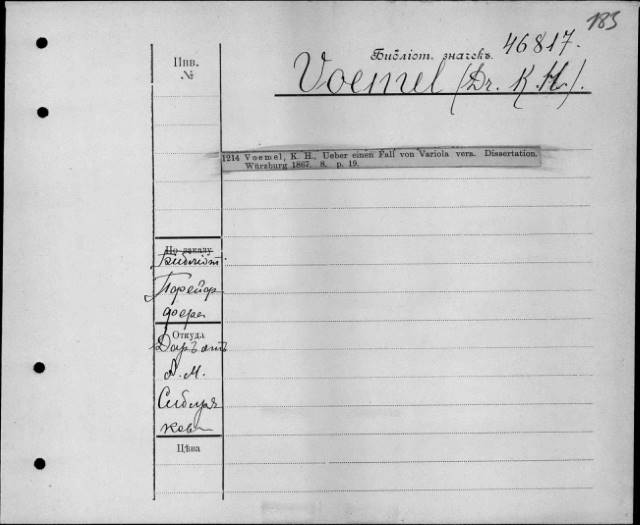 185
Инв.
№
Библіот. значекъ. 46817.
Voemel (Dr. K. H.).
1214 Voemel, K. H., Ueber einen Fall von Variola vera. Dissertation.
Würzburg 1867. 8. p. 19.
По заказу
Библіот.
Порейф
фера
Откуда
Даръ отъ
А. М.
Сибиря
кова
Цѣна